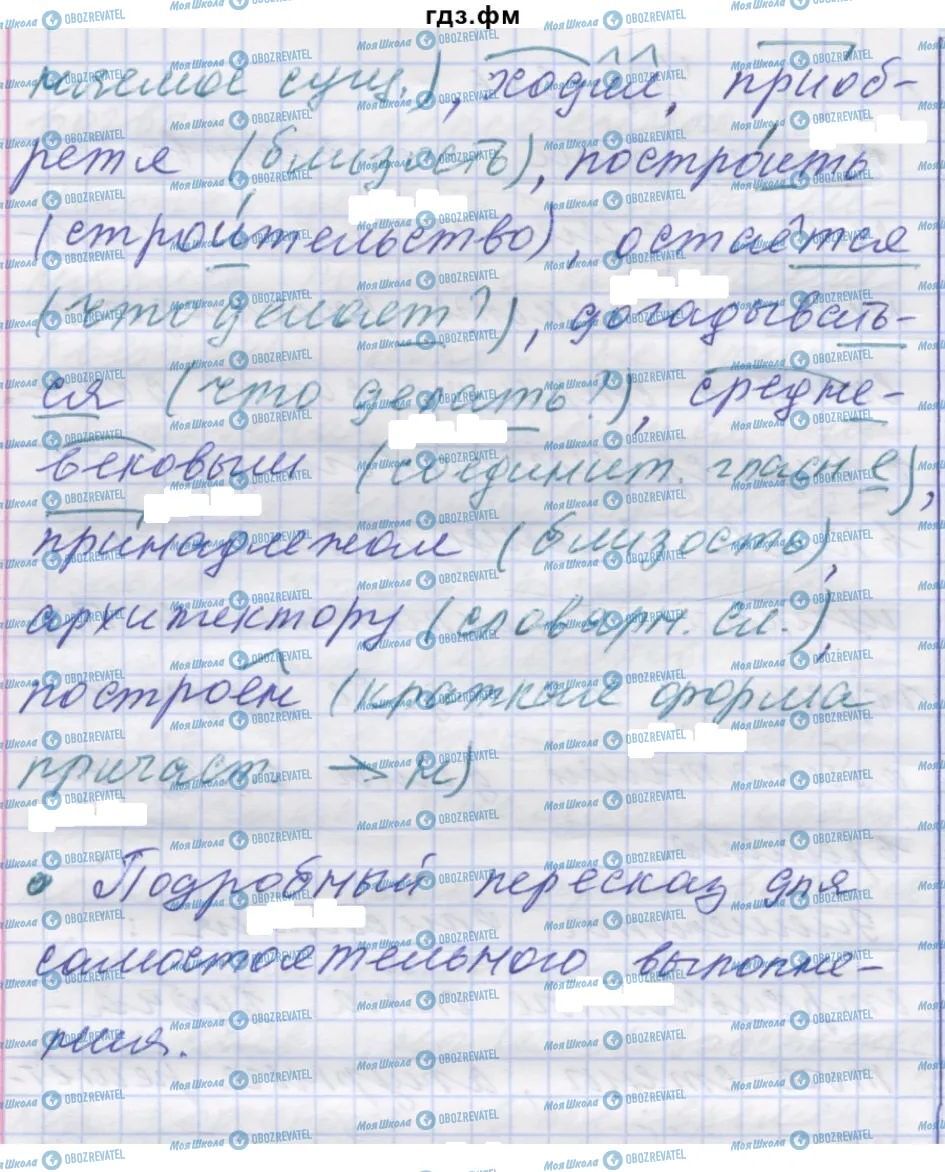 гдз.фм
сущ.), ходил, приоб-
ретя (близость), построить
(строительство), остаётся
(что делает?), догадывать-
ся (что делать?), средне-
вековым (соединит. гласн е),
принадлежал (близость),
архитектору (словарн. сл.),
построен (краткая форма
причаст. → н)
Подробный пересказ для
самостоятельного выполне-
ния.